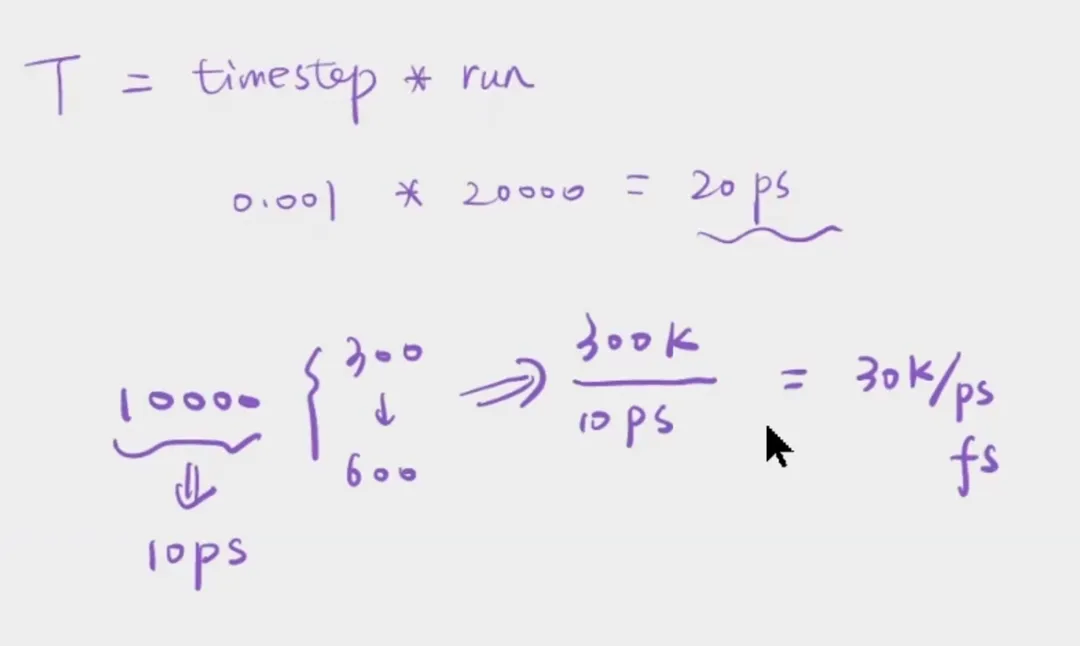 T = timestep * run
0.001 * 20000 = 20ps
10000 { 300 ↓ 600 ⇒ 300K / 10ps = 30K/ps
fs
⇓
10ps